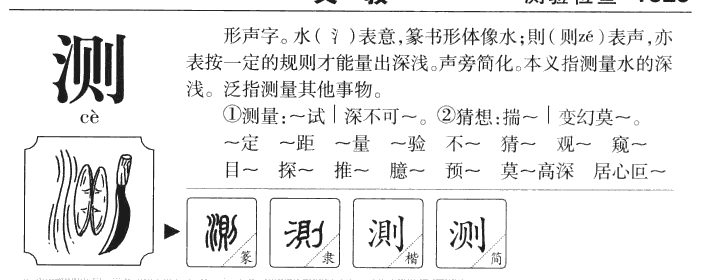 测
cè
形声字。水(氵)表意,篆书形体像水;則(则zé)表声,亦
表按一定的规则才能量出深浅。声旁简化。本义指测量水的深
浅。泛指测量其他事物。
①测量:～试｜深不可～。②猜想:揣～｜变幻莫～。
～定 ～距 ～量 ～验 不～ 猜～ 观～ 窥～
目～ 探～ 推～ 臆～ 预～ 莫～高深 居心叵～
測 篆 測 隶 測 楷 测 简